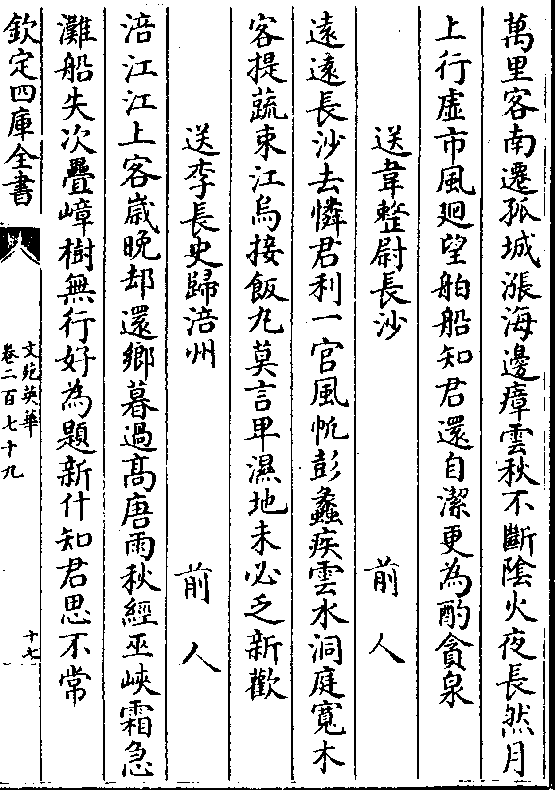 萬里客南遷孤城漲海邊瘴雲秋不斷隂火夜長然月
上行虚市風廻望舶船知君還自潔更為酌貪泉
送韋整尉長沙 前人
逺逺長沙去憐君利一官風帆彭蠡疾雲水洞庭寛木
客提蔬束江烏接飯丸莫言卑濕地未必乏新歡
送李長史歸涪州 前人
涪江江上客嵗晚却還鄉暮過髙唐雨秋經巫峽霜急
灘船失次疊嶂樹無行好為題新什知君思不常
欽定四庫全書
文苑英華
卷二百七十九
十七